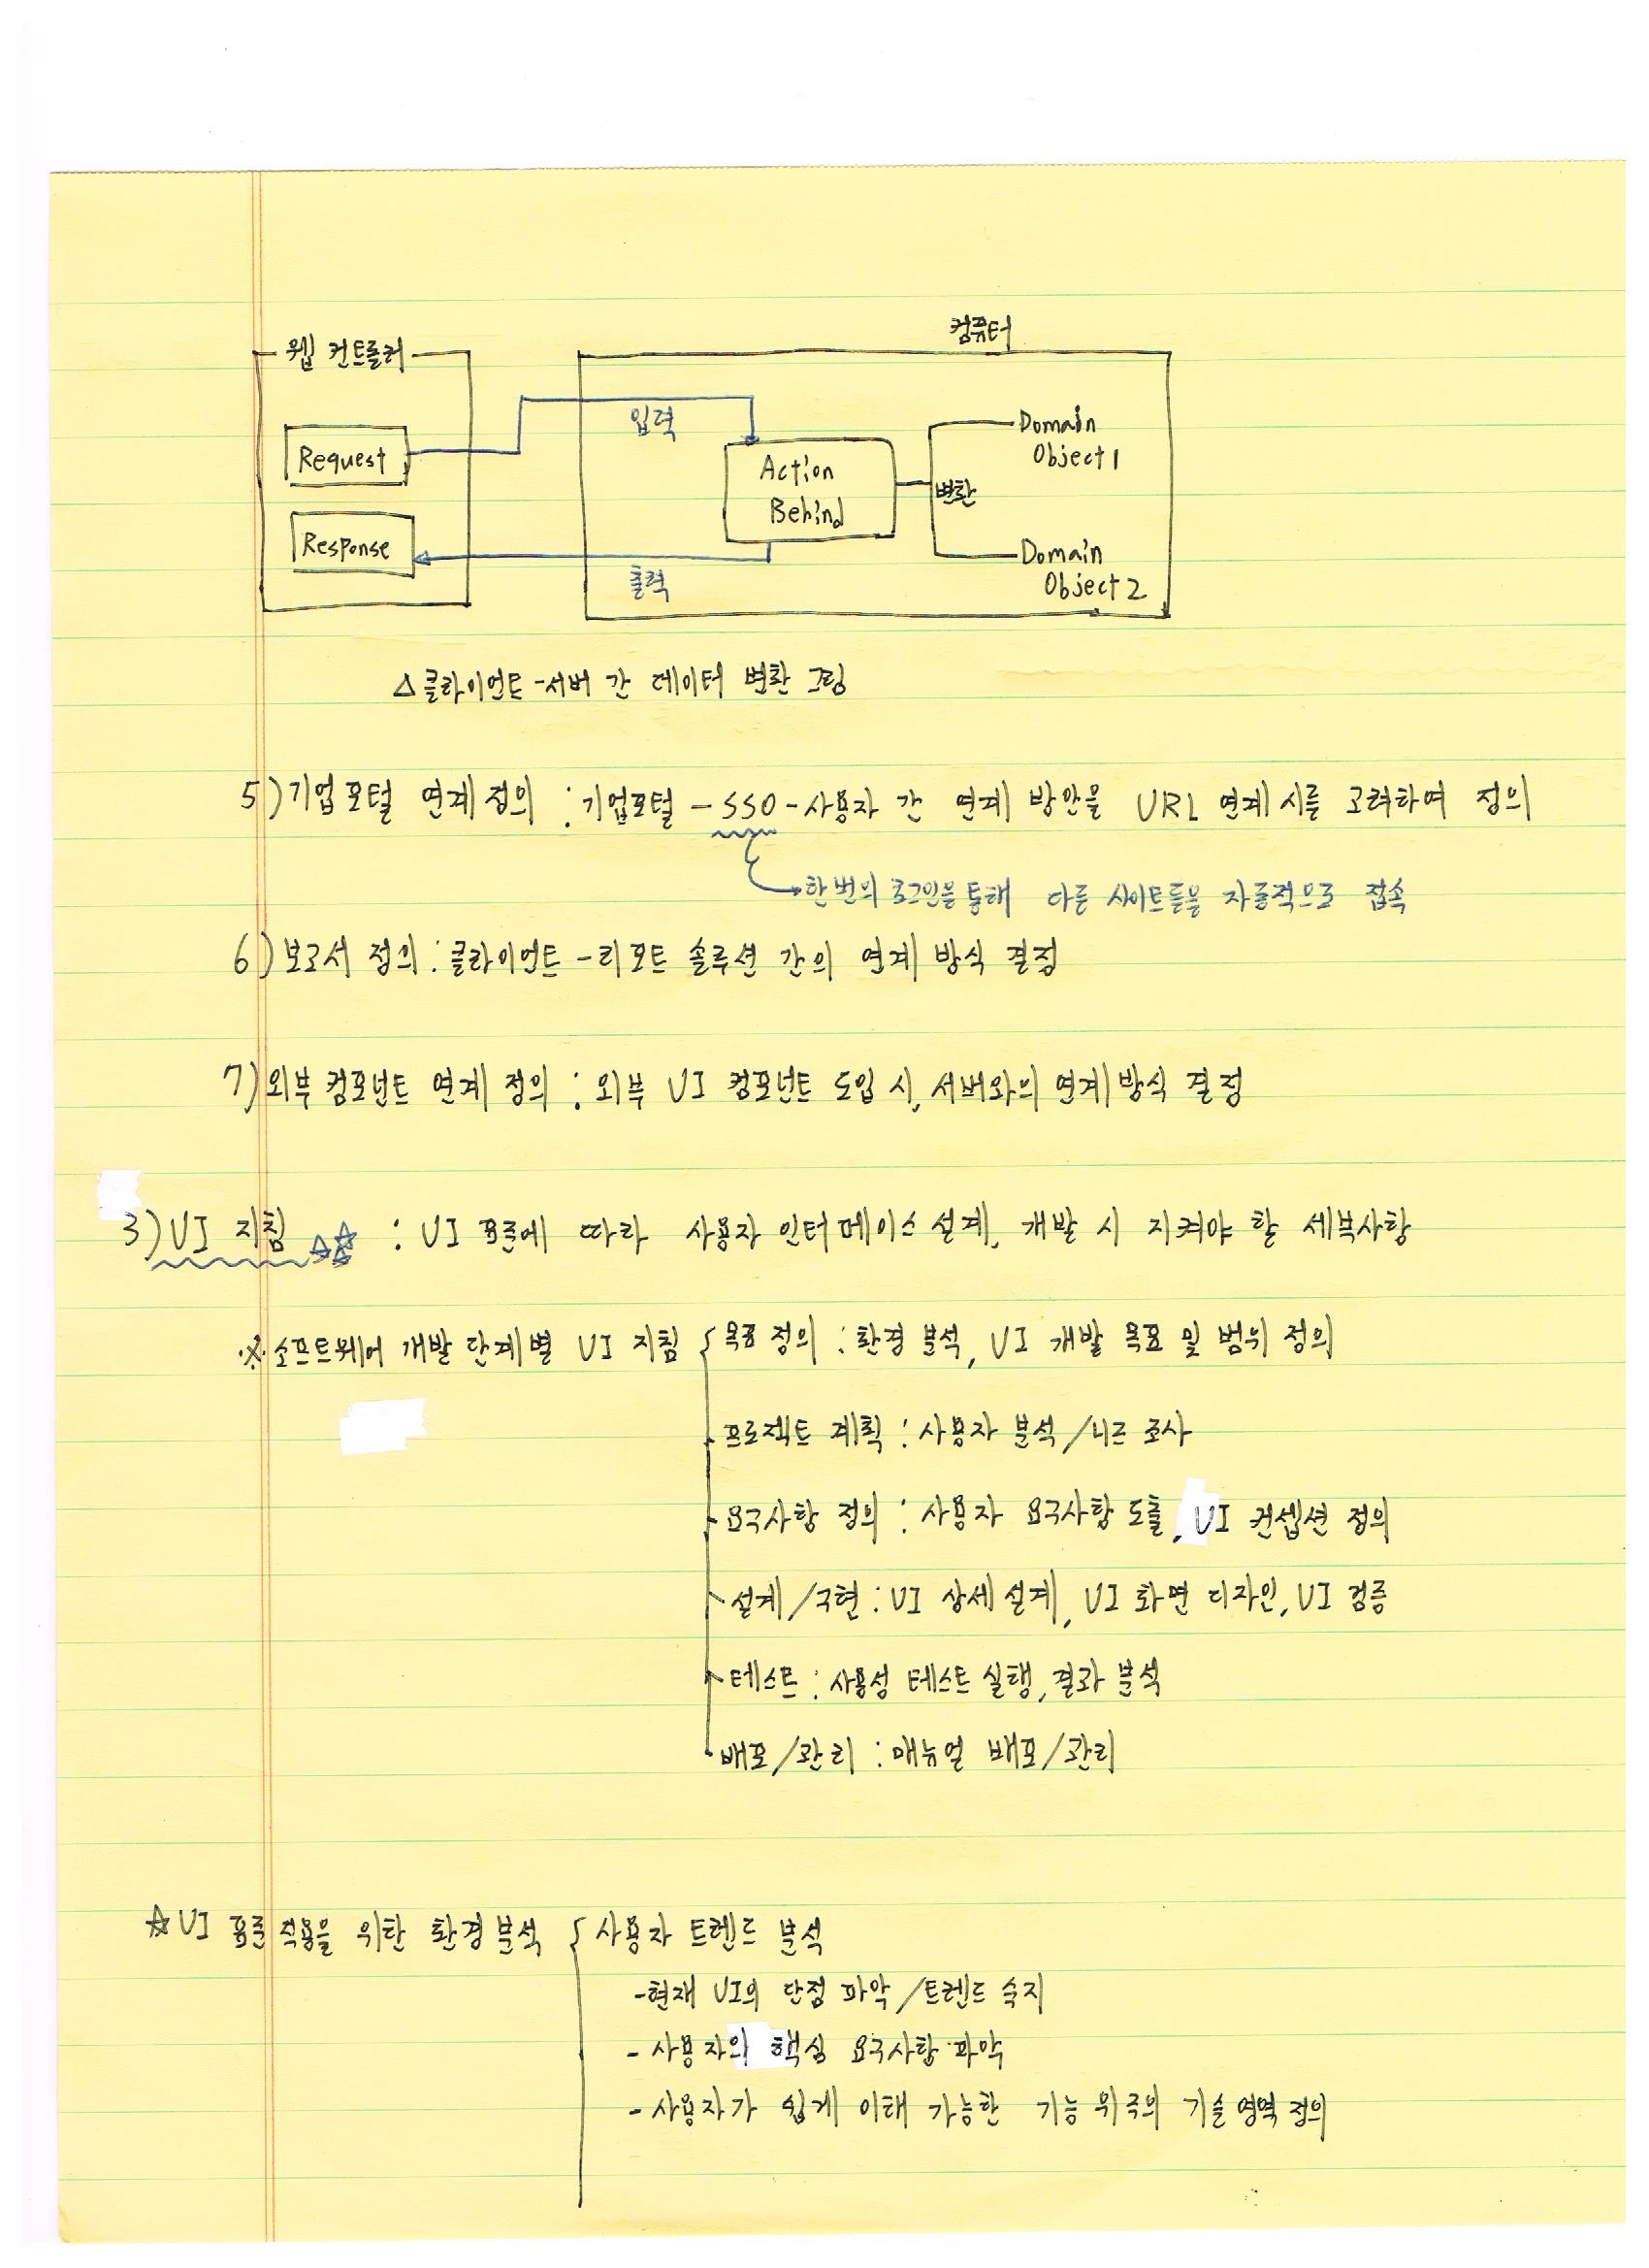 웹 컨트롤러
컴퓨터
Request
입력
Action
Behind
변환
Domain
Object 1
Response
출력
Domain
Object 2
△ 클라이언트-서버 간 데이터 변환 그림
5) 기업포털 연계 정의 : 기업포털 - SSO - 사용자 간 연계 방안을 URL 연계 시를 고려하여 정의
한번의 로그인을 통해 다른 사이트들을 자동적으로 접속
6) 보고서 정의 : 클라이언트 - 리포트 솔루션 간의 연계 방식 결정
7) 외부 컴포넌트 연계 정의 : 외부 UI 컴포넌트 도입 시, 서버와의 연계 방식 결정
3) UI 지침 ☆☆☆ : UI 표준에 따라 사용자 인터페이스 설계, 개발 시 지켜야 할 세부사항
※ 소프트웨어 개발 단계별 UI 지침 { 목표 정의 : 환경 분석, UI 개발 목표 및 범위 정의
프로젝트 계획 : 사용자 분석/니즈 조사
요구사항 정의 : 사용자 요구사항 도출, UI 컨셉션 정의
설계/구현 : UI 상세 설계, UI 화면 디자인, UI 검증
테스트 : 사용성 테스트 실행, 결과 분석
배포/관리 : 매뉴얼 배포/관리
☆ UI 표준 적용을 위한 환경 분석 { 사용자 트렌드 분석
- 현재 UI의 단점 파악/트렌드 숙지
- 사용자의 핵심 요구사항 파악
- 사용자가 쉽게 이해 가능한 기능 위주의 기술 영역 정의